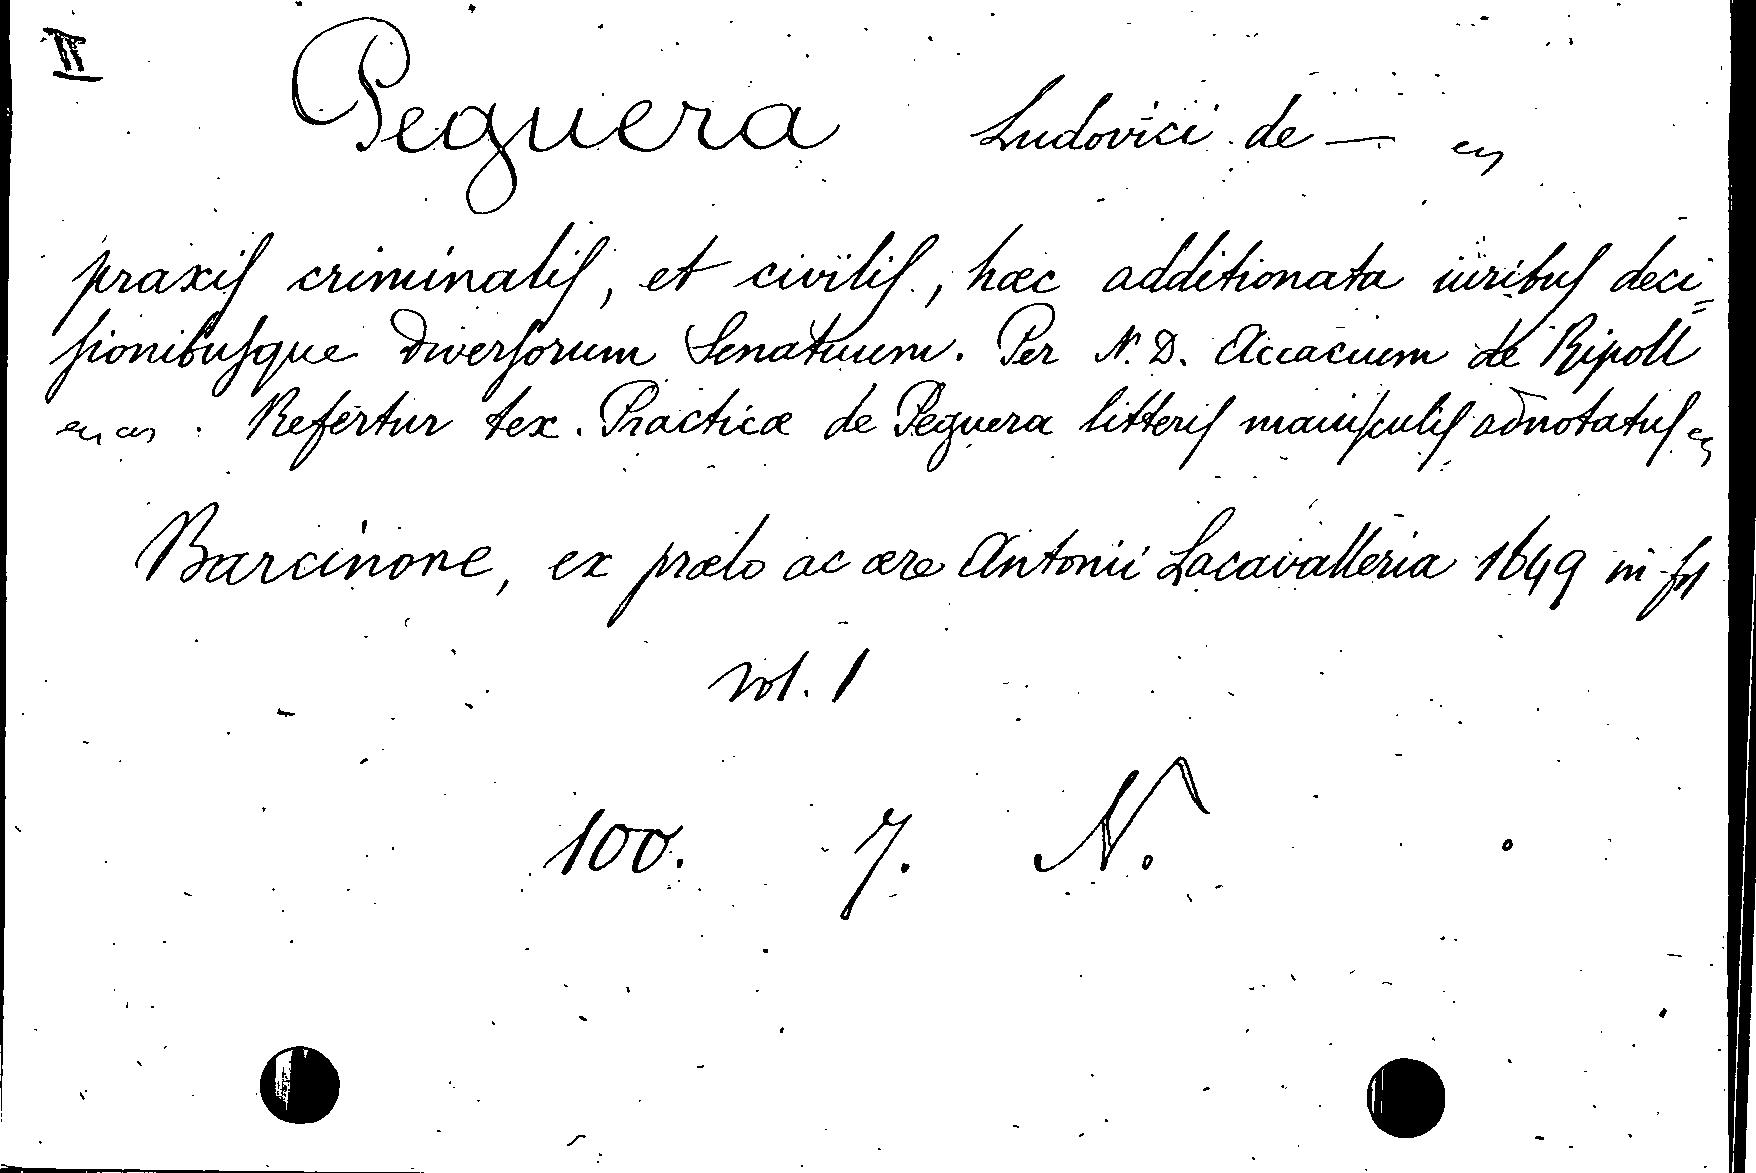 II
Peguera Ludovici de —
praxis criminalis, et civilis, hæc additionata iuribus deci=
sionibusque diversorum Senatuum. Per N. D. Accacuem de Ripoll
. Refertur tex. Practicæ de Peguera litteris maiusculis adnotatus
Barcinone, ex prælo ac ære Antonii Lacavalleria 1649 in fol
vol. 1
100. 7. N.